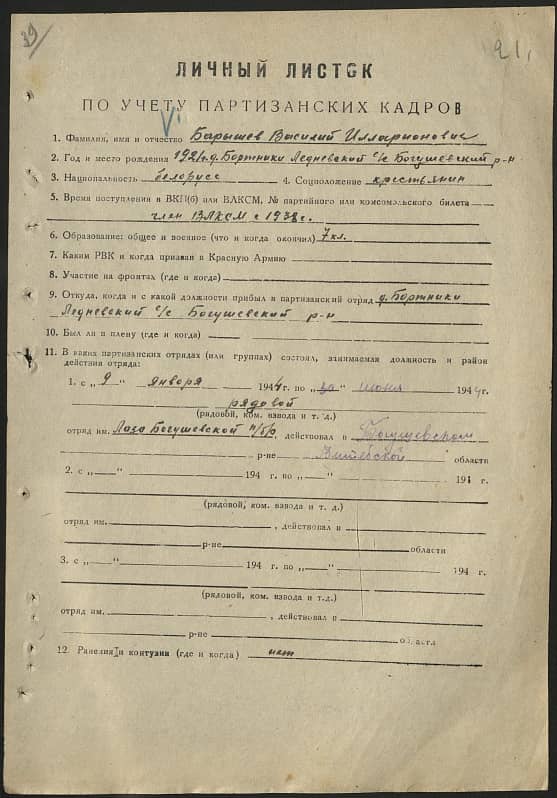 39/
21,
ЛИЧНЫЙ ЛИСТОК
ПО УЧЕТУ ПАРТИЗАНСКИХ КАДРОВ
1. Фамилия, имя и отчество Барышев Василий Илларионович
2. Год и место рождения 1921г. д. Бортники Ледневский с/с Богушевский р-н
3. Национальность белорусс 4. Соцположение крестьянин
5. Время поступления в ВКП(б) или ВЛКСМ, № партийного или комсомольского билета
член ВЛКСМ с 1938 г.
6. Образование: общее и военное (что и когда окончил) 7 кл.
7. Каким РВК и когда призван в Красную Армию
8. Участие на фронтах (где и когда)
9. Откуда, когда и с какой должности прибыл в партизанский отряд д. Бортники
Ледневский с/с Богушевский р-н
10. Был ли в плену (где и когда)
11. В каких партизанских отрядах (или группах) состоял, занимаемая должность и район
действия отряда:
1. с „9" января 1944 г. по „ " июня 1944 г.
рядовой
(рядовой, ком. взвода и т. д.)
отряд им. Лазо Богушевской п/бр, действовал в Богушевском
р-не Витебской области
2. с „—" 194 г. по „—" 194 г.
(рядовой, ком. взвода и т. д.)
отряд им. , действовал в
р-не области
3. с „—" 194 г. по „—" 194 г.
(рядовой, ком. взвода и т.д.)
отряд им. , действовал в
р-не области
12. Ранения и контузии (где и когда) нет